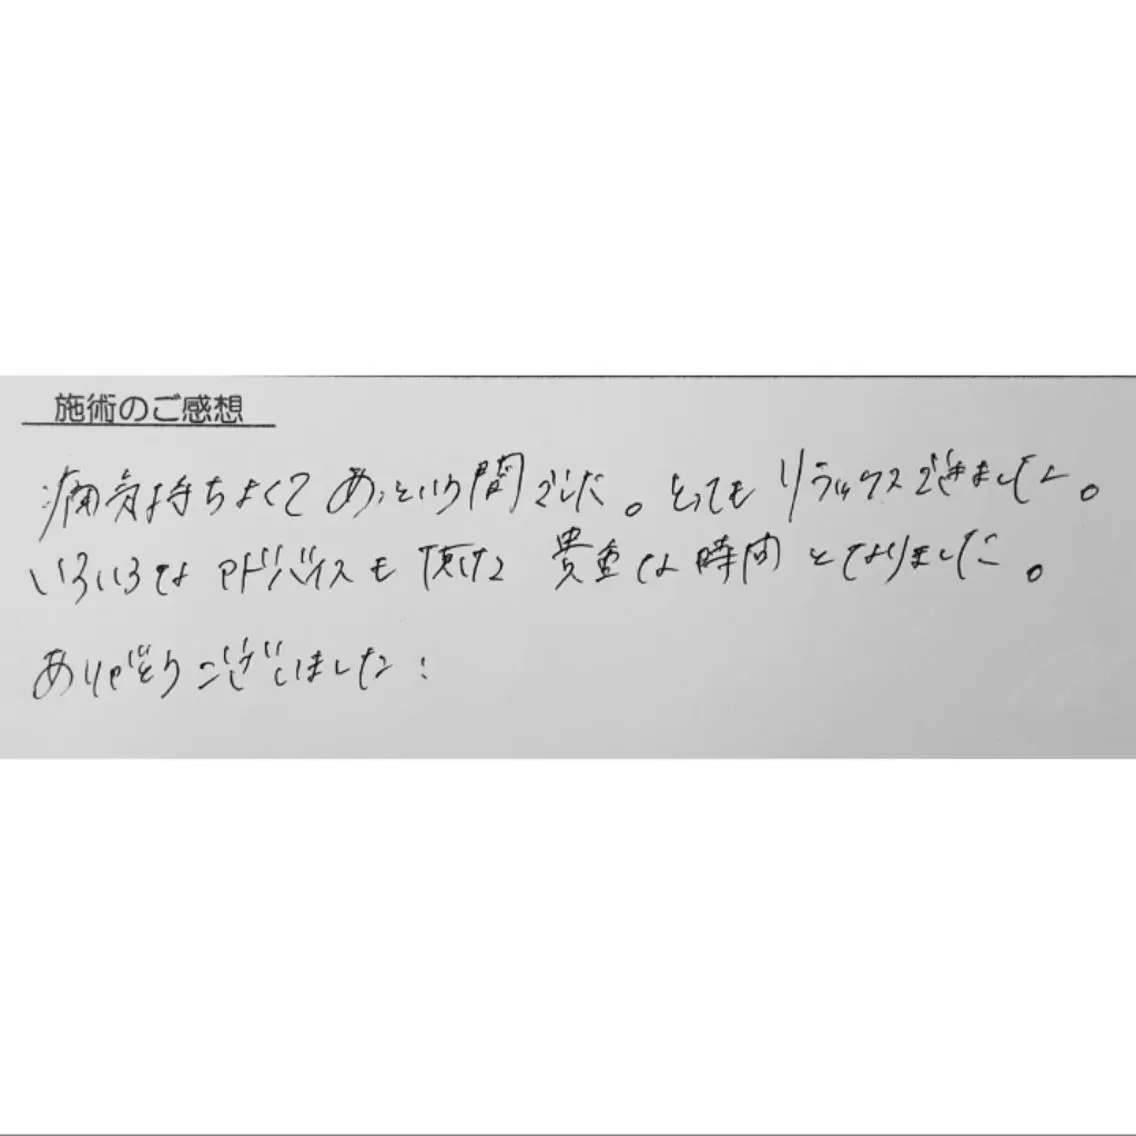 施術のご感想
痛気持ちよくてあっという間でした。とってもリラックスできました。
いろいろなアドバイスも頂けて貴重な時間となりました。
ありがとうございました!